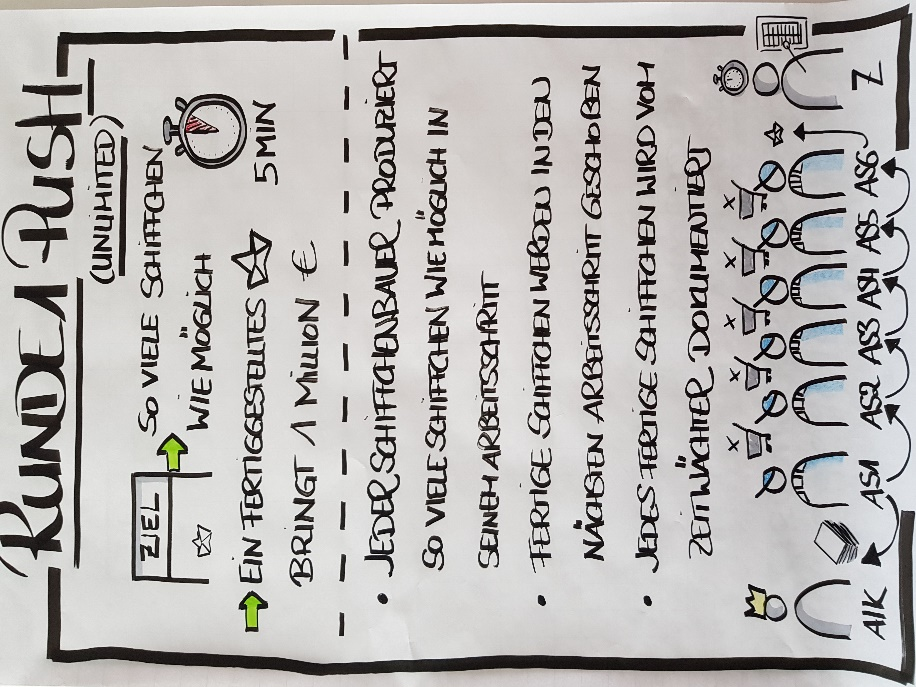 RUNDE 1 PUSH
(UNLIMITED)
ZIEL
SO VIELE SCHIFFCHEN
WIE MÖGLICH
5 MIN
EIN FERTIGGESTELLTES
BRINGT 1 MILLION €
• JEDER SCHIFFCHENBAUER PRODUZIERT
SO VIELE SCHIFFCHEN WIE MÖGLICH IN
SEINEM ARBEITSSCHRITT
• FERTIGE SCHIFFCHEN WERDEN IN DEN
NÄCHSTEN ARBEITSSCHRITT GESCHOBEN
• JEDES FERTIGE SCHIFFCHEN WIRD VOM
ZEITWÄCHTER DOKUMENTIERT
X X X X X
A/K AS1 AS2 AS3 AS4 AS5 AS6 Z